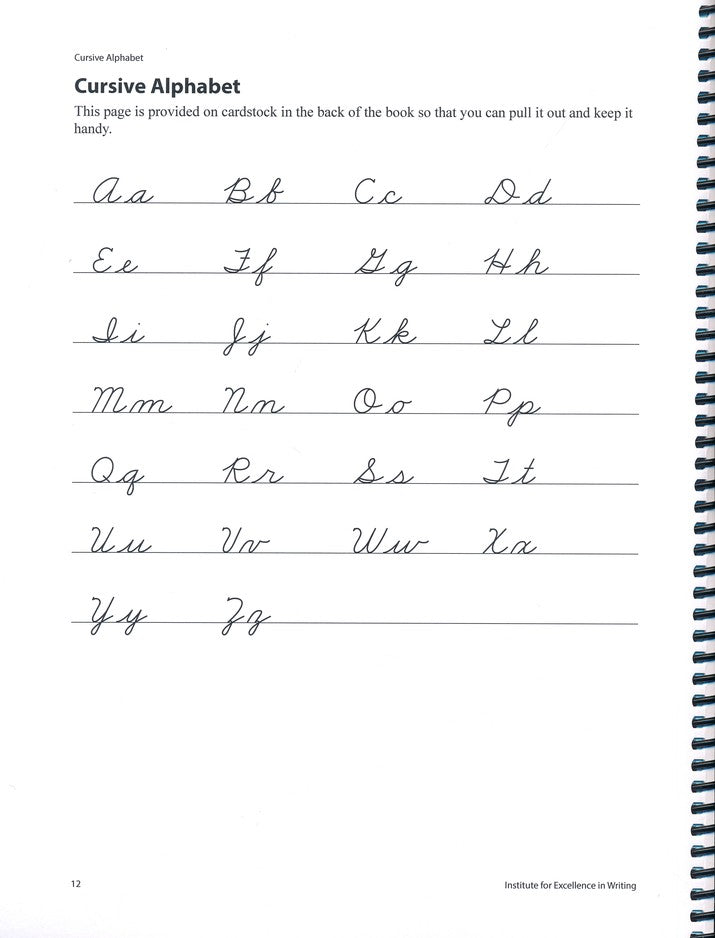 Cursive Alphabet
Cursive Alphabet
This page is provided on cardstock in the back of the book so that you can pull it out and keep it
handy.
Aa Bb Cc Dd
Ee Ff Gg Hh
Ii Jj Kk Ll
Mm Nn Oo Pp
Qq Rr Ss Tt
Uu Vv Ww Xx
Yy Zz
12 Institute for Excellence in Writing